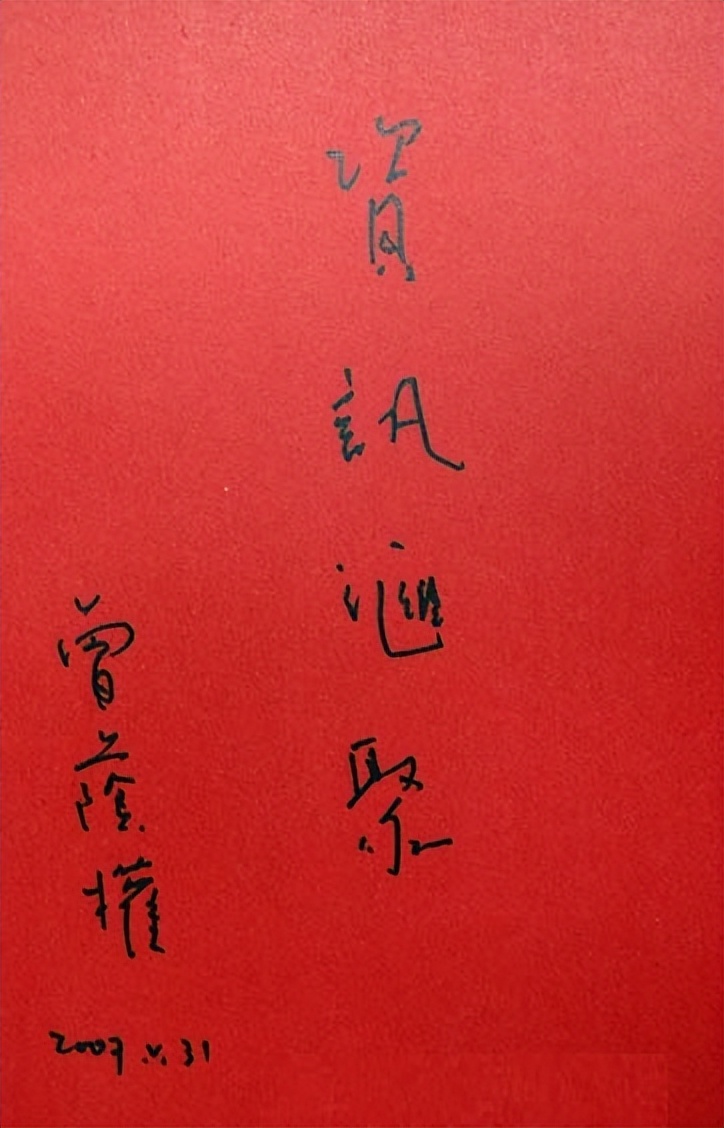 資訊匯聚
曾蔭權
2007.V.31